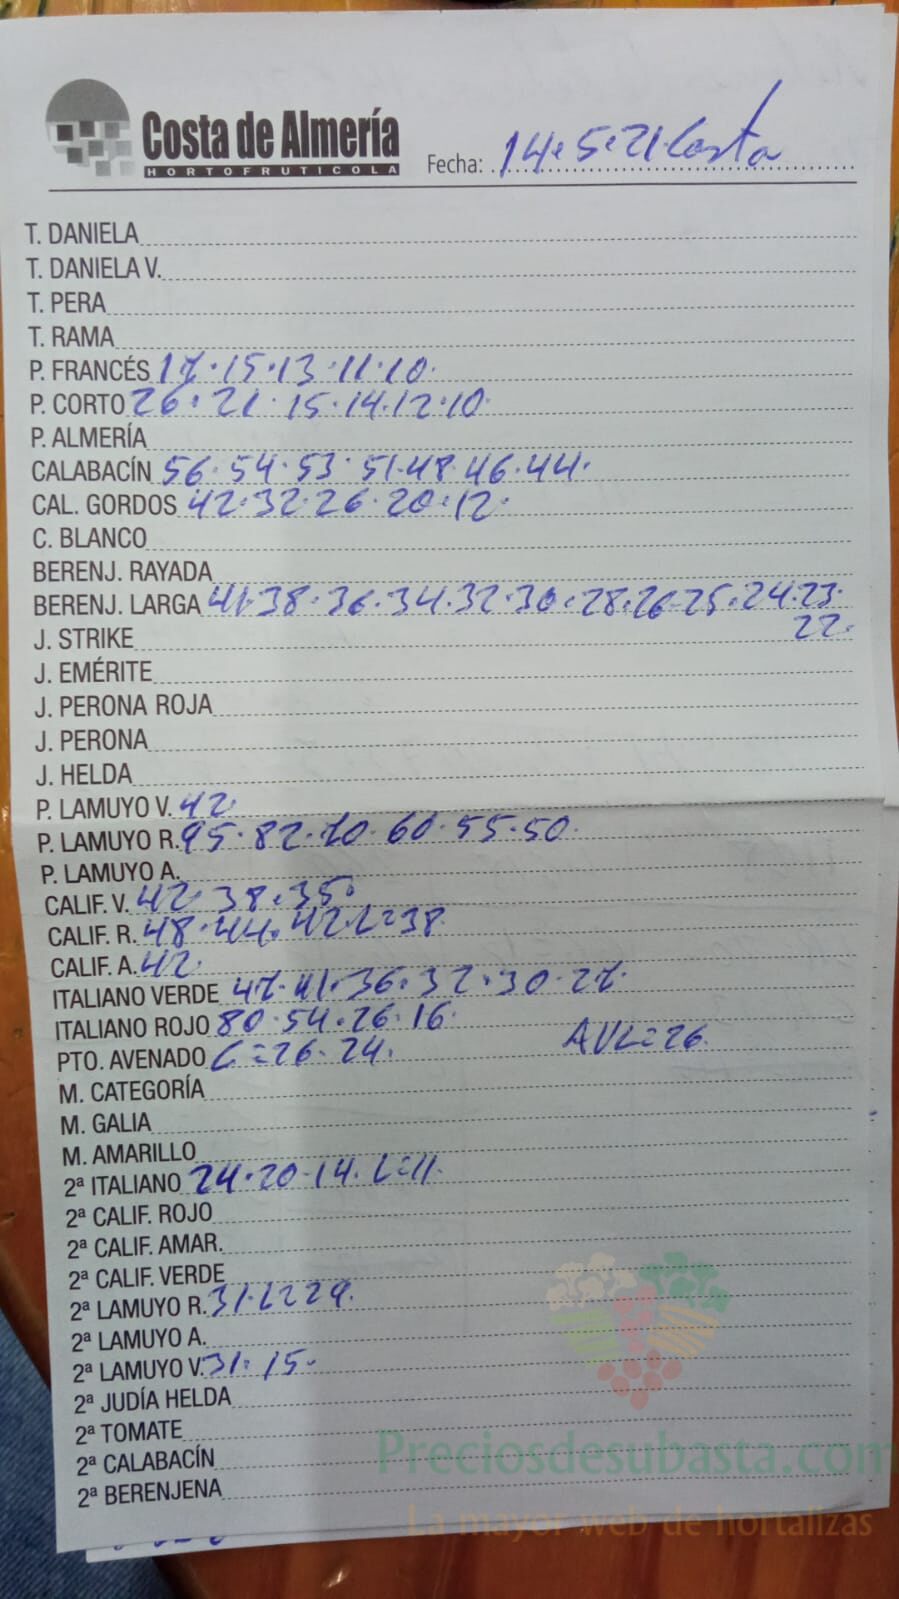 Costa de Almería
HORTOFRUTICOLA
Fecha: 14.5.21.Costa
T. DANIELA
T. DANIELA V.
T. PERA
T. RAMA
P. FRANCÉS 17.15.13.11.10.
P. CORTO 26.21.15.14.12.10
P. ALMERÍA
CALABACÍN 56.54.53.51.48.46.44.
CAL. GORDOS 42.32.26.20.12.
C. BLANCO
BERENJ. RAYADA
BERENJ. LARGA 41.38.36.34.32.30.28.26.25.24.23.
22.
J. STRIKE
J. EMÉRITE
J. PERONA ROJA
J. PERONA
J. HELDA
P. LAMUYO V. 42
P. LAMUYO R. 95.82.70.60.55.50.
P. LAMUYO A.
CALIF. V. 42.38.35.
CALIF. R. 48.44.42.L=38
CALIF. A. 42
ITALIANO VERDE 47.41.36.32.30.27.
ITALIANO ROJO 80.54.26.16.
PTO. AVENADO C=26.24. AVL=26.
M. CATEGORÍA
M. GALIA
M. AMARILLO
2ª ITALIANO 24.20.14.L=11.
2ª CALIF. ROJO
2ª CALIF. AMAR.
2ª CALIF. VERDE
2ª LAMUYO R. 31.L=29.
2ª LAMUYO A.
2ª LAMUYO V. 31.15.
2ª JUDÍA HELDA
2ª TOMATE
2ª CALABACÍN
2ª BERENJENA
Preciosdesubasta.com
La mayor web de hortalizas